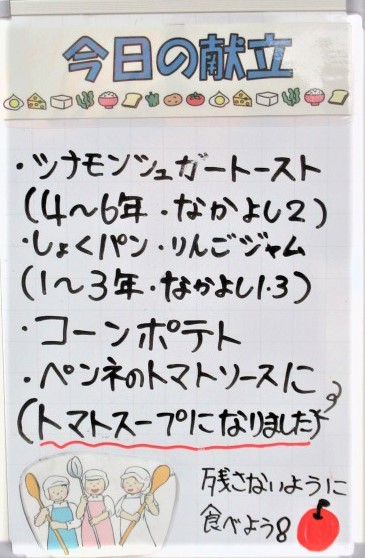 今日の献立
・シナモンシュガートースト
(4〜6年・なかよし2)
・しょくパン・りんごジャム
(1〜3年・なかよし1・3)
・コーンポテト
・ペンネのトマトソースに
(トマトスープになりました)
残さないように
食べよう